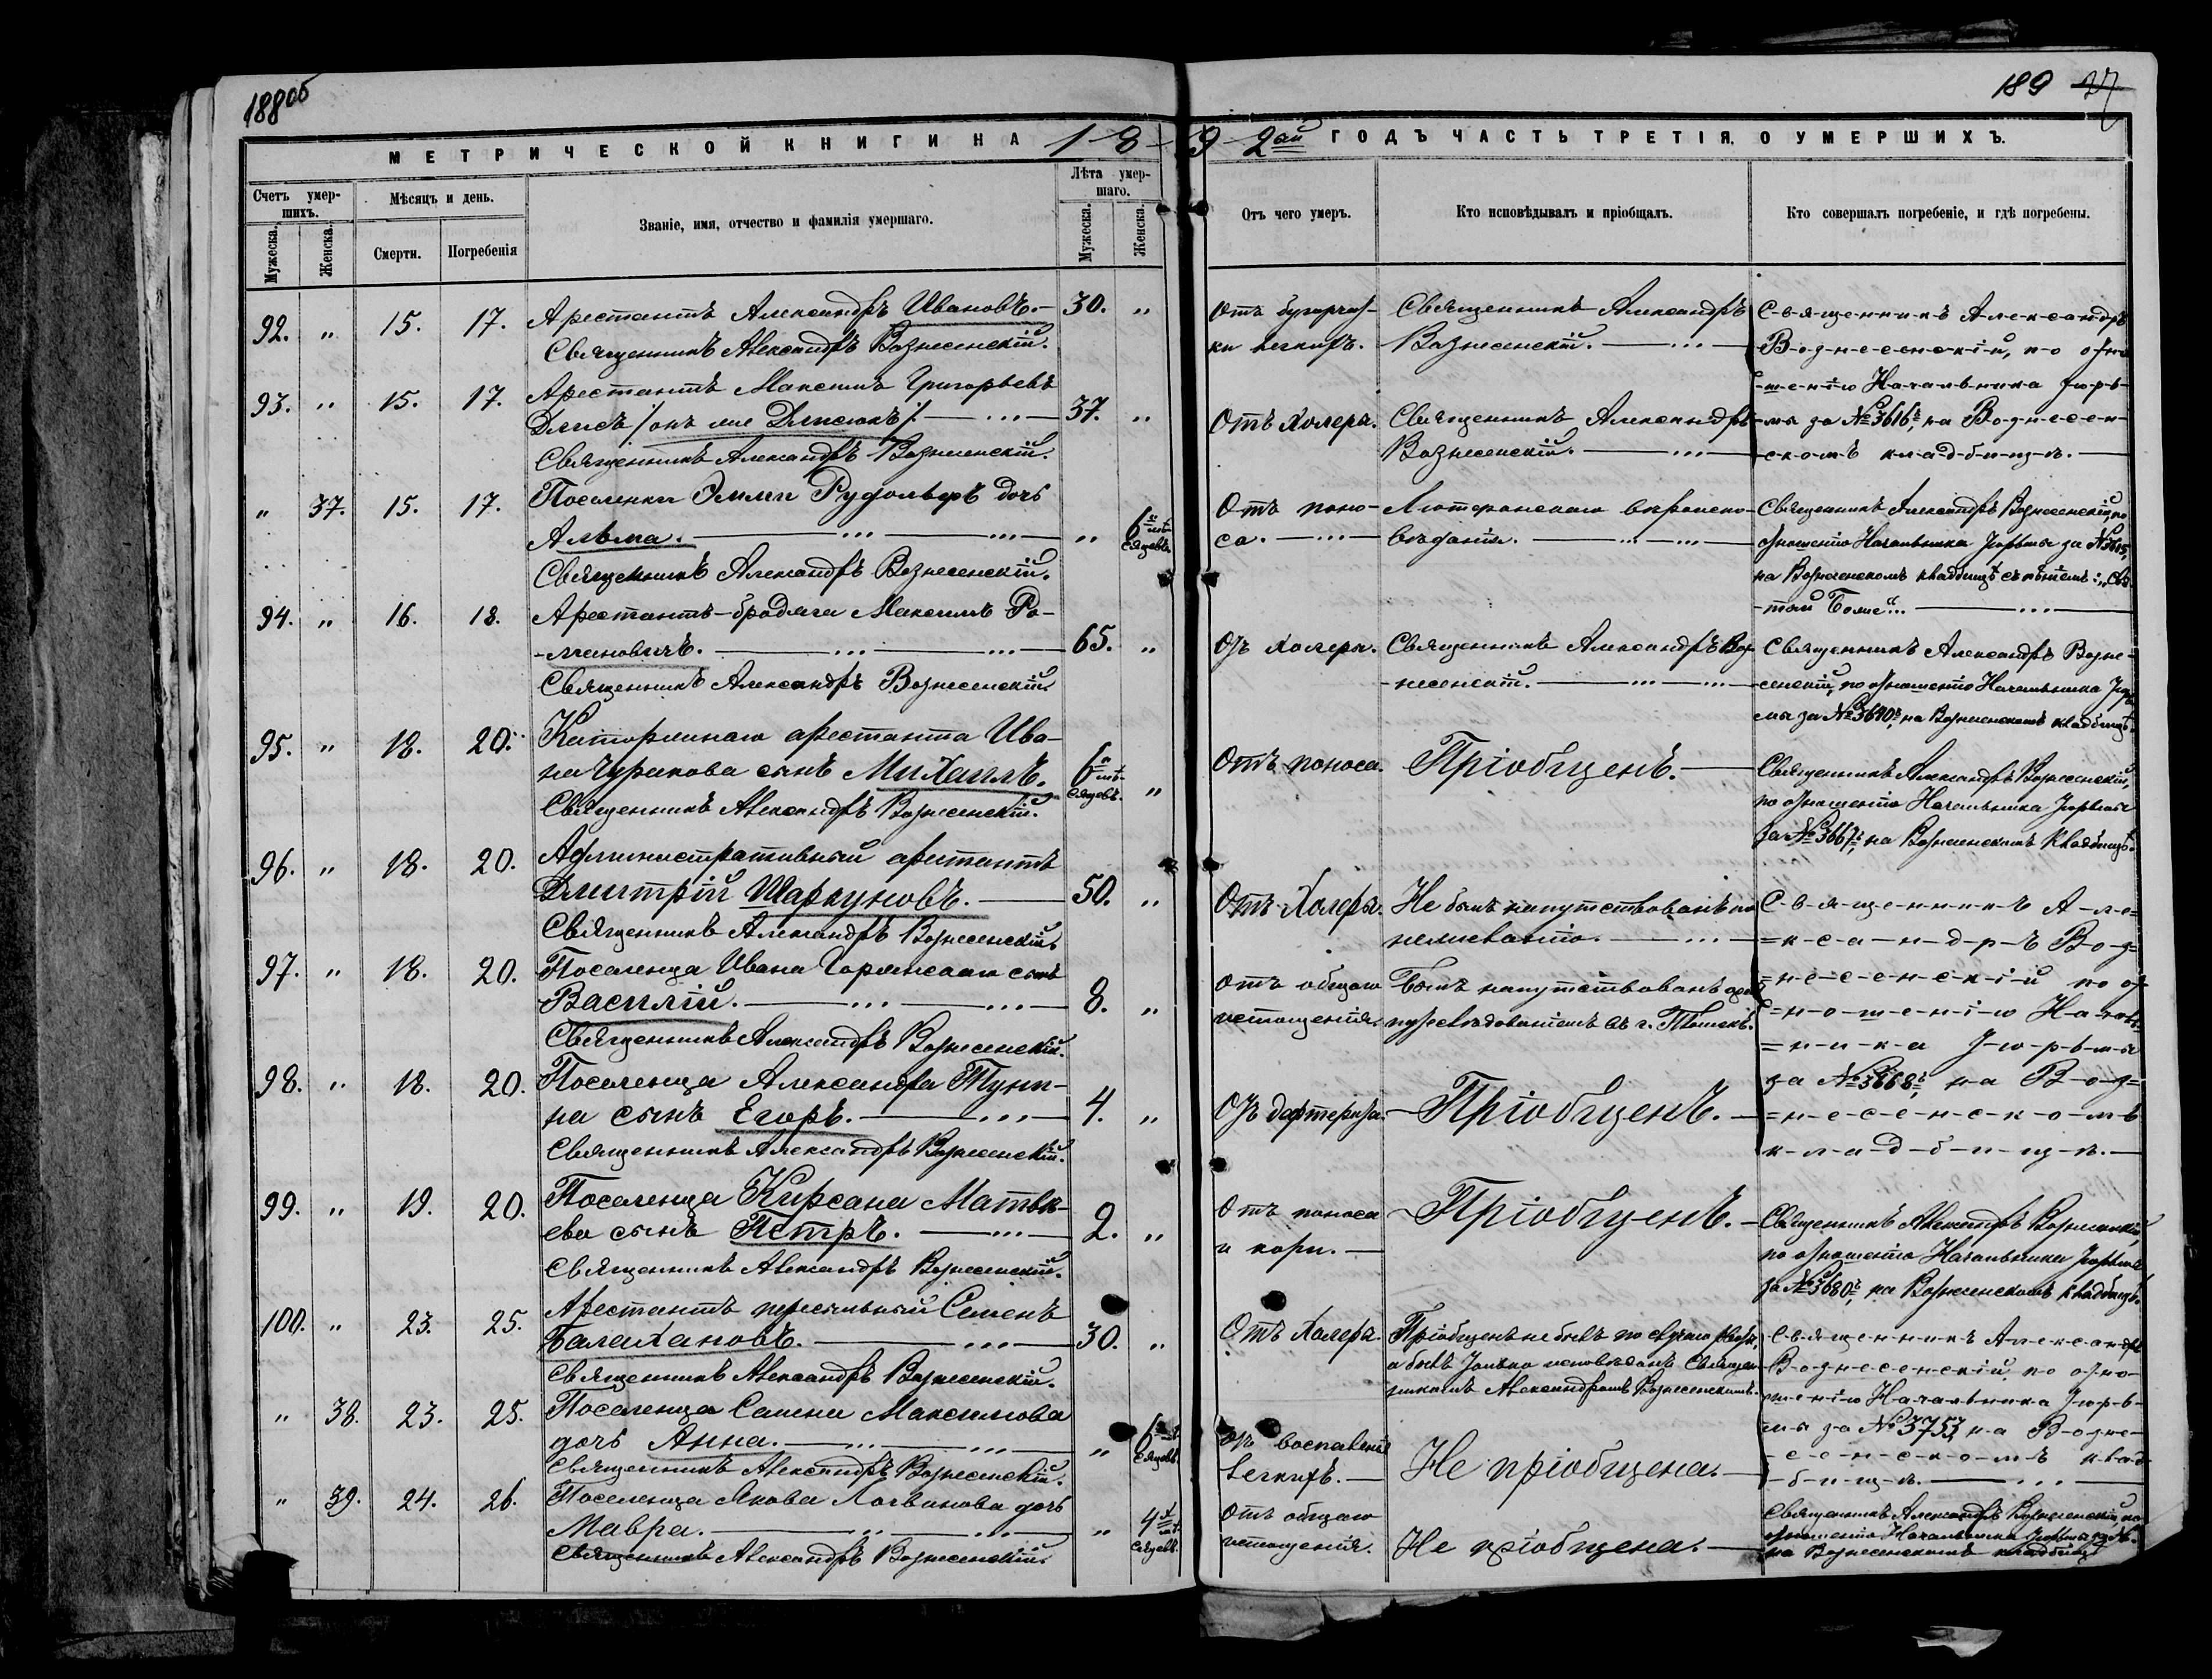 188 об
189 37
МЕТРИЧЕСКОЙ КНИГИ НА 1892ой ГОДЪ ЧАСТЬ ТРЕТІЯ. О УМЕРШИХЪ.
Счетъ умершихъ.
Мужеска.
Женска.
Мѣсяцъ и день.
Смерти.
Погребенія
Званіе, имя, отчество и фамилія умершаго.
Лѣта умершаго.
Мужеска.
Женска.
Отъ чего умеръ.
Кто исповѣдывалъ и пріобщалъ.
Кто совершалъ погребеніе, и гдѣ погребены.
92. " 15. 17. Арестантъ Александръ Ивановъ. 30. "
Священникъ Александръ Вознесенскій.
Отъ бугорчат-
ки легкихъ.
Священникъ Александръ
Вознесенскій.
Священникъ Александръ
Вознесенскій, по отно-
шенію Начальника Тюрь-
мы за № 3616, на Вознесен-
скомъ кладбищѣ.
93. " 15. 17. Арестантъ Максимъ Григорьевъ
37. "
Священникъ Александръ Вознесенскій.
Отъ Холеры.
Священникъ Александръ
Вознесенскій.
" 37. 15. 17. Поселенки Эмми Рудольфъ дочь
Альма. " 6 мѣ-
сяцевъ.
Священникъ Александръ Вознесенскій.
Отъ поно-
са.
Лютеранскаго вѣроиспо-
вѣданія.
Священникъ Александръ Вознесенскій, по
отношенію Начальника Тюрьмы за №
на Вознесенскомъ кладбищѣ съ пѣніемъ: „Свя-
тый Боже“...
94. " 16. 18. Арестантъ-бродяга Максимъ Ро-
мановичъ. 65. "
Священникъ Александръ Вознесенскій.
Отъ холеры.
Священникъ Александръ Воз-
несенскій.
Священникъ Александръ Возне-
сенскій, по отношенію Начальника Тюрь-
мы за № на Вознесенскомъ кладбищѣ.
95. " 18. 20. Каторжнаго арестанта Ива-
на Чуракова сынъ Михаилъ. 6 мѣ-
сяцевъ. "
Священникъ Александръ Вознесенскій.
Отъ поноса.
Пріобщенъ.
Священникъ Александръ Вознесенскій,
по отношенію Начальника Тюрьмы
за № 3667, на Вознесенскомъ кладбищѣ.
96. " 18. 20. Административный арестантъ
Дмитрій Шаркуновъ. 50. "
Священникъ Александръ Вознесенскій.
Отъ Холеры.
Не былъ напутствованъ по
нежеланію.
Священникъ Але-
ксандръ Воз-
несенскій по от-
ношенію Началь-
ника Тюрьмы
за № 3668, на Воз-
несенскомъ
кладбищѣ.
97. " 18. 20. Поселенца Ивана сынъ
Василій. 8. "
Священникъ Александръ Вознесенскій.
Отъ общаго
истощенія.
Былъ напутствованъ
въ г. Томскѣ.
98. " 18. 20. Поселенца Александра Туни-
на сынъ Егоръ. 4. "
Священникъ Александръ Вознесенскій.
Отъ дифтерита.
Пріобщенъ.
99. " 19. 20. Поселенца Кирсана Матвѣ-
ева сынъ Петръ. 2. "
Священникъ Александръ Вознесенскій.
Отъ поноса
и кори.
Пріобщенъ.
Священникъ Александръ Вознесенскій,
по отношенію Начальника Тюрьмы
за № 3680, на Вознесенскомъ кладбищѣ.
100. " 23. 25. Арестантъ пересыльный Семенъ
Балахановъ. 30. "
Священникъ Александръ Вознесенскій.
Отъ Холеры.
Пріобщенъ не былъ по случаю рвоты,
а былъ только исповѣданъ Священ-
никомъ Александромъ Вознесенскимъ.
Священникъ Александръ
Вознесенскій, по отно-
шенію Начальника Тюрь-
мы за № 3753, на Возне-
сенскомъ клад-
бищѣ.
" 38. 23. 25. Поселенца Семена Максимова
дочь Анна. " 6 мѣ-
сяцевъ.
Священникъ Александръ Вознесенскій.
Отъ воспаленія
легкихъ.
Не пріобщена.
" 39. 24. 26. Поселенца Якова Логвинова дочь
Мавра. " 4 мѣ-
сяцевъ.
Священникъ Александръ Вознесенскій.
Отъ общаго
истощенія.
Не пріобщена.
Священникъ Александръ Вознесенскій, по
отношенію Начальника Тюрьмы за №
на Вознесенскомъ кладбищѣ